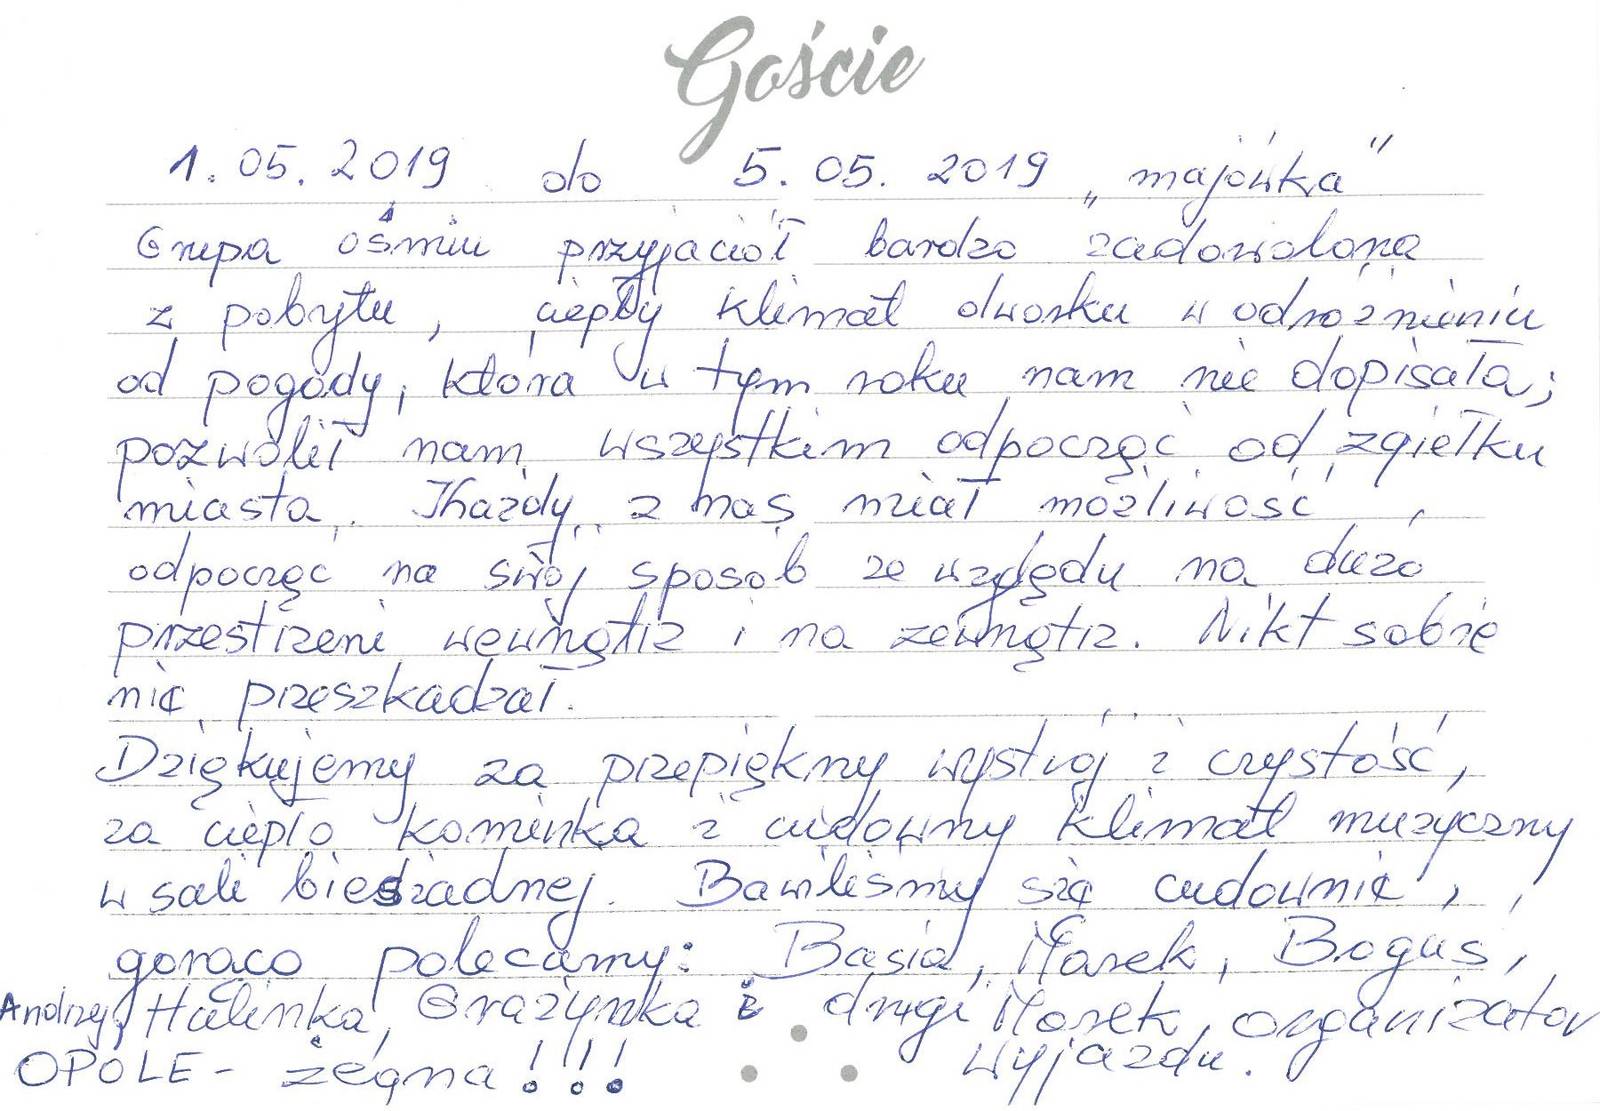 Goście
1.05.2019 do 5.05.2019 „majówka”
Grupa ośmiu przyjaciół bardzo zadowolona
z pobytu, ciepły klimat dworku w odróżnieniu
od pogody, która w tym roku nam nie dopisała;
pozwolił nam wszystkim odpocząć od zgiełku
miasta. Każdy z nas miał możliwość
odpocząć na swój sposób ze względu na dużo
przestrzeni wewnątrz i na zewnątrz. Nikt sobie
nie przeszkadzał.
Dziękujemy za przepiękny wystrój i czystość,
za ciepło kominka i cudowny klimat muzyczny
w sali biesiadnej. Bawiliśmy się cudownie,
gorąco polecamy: Basia, Marek, Boguś,
Andrzej, Halinka, Grażynka i drugi Marek, organizator
wyjazdu.
OPOLE - żegna!!!